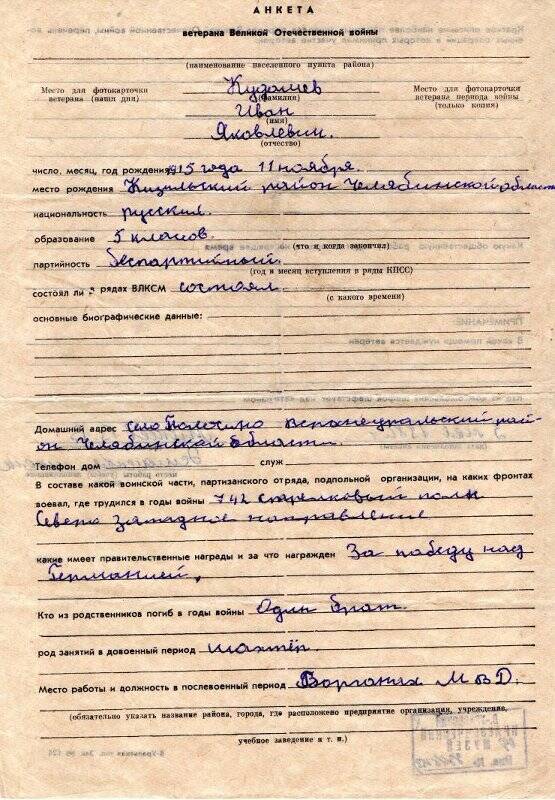 АНКЕТА
ветерана Великой Отечественной войны
(наименование населенного пункта района)
Место для фотокарточки
ветерана (наши дни)
Кудашев
(фамилия)
Иван
(имя)
Яковлевич.
(отчество)
Место для фотокарточки
ветерана периода войны
(только копия)
число, месяц, год рождения 1915 года 11 ноября.
место рождения Кизильский район Челябинской области
национальность русский.
образование 5 классов.
(что и когда закончил)
партийность беспартийный.
(год и месяц вступления в ряды КПСС)
состоял ли в рядах ВЛКСМ состоял.
(с какого времени)
основные биографические данные:
Домашний адрес село Полоцкое Верхнеуральский рай-
он Челябинской области.
Телефон дом служ
В составе какой воинской части, партизанского отряда, подпольной организации, на каких фронтах
воевал, где трудился в годы войны 742 стрелковый полк
Северо западное направление
какие имеет правительственные награды и за что награжден За победу над
Германией,
Кто из родственников погиб в годы войны Один брат.
род занятий в довоенный период шахтёр.
Место работы и должность в послевоенный период В органах М В Д.
(обязательно указать название района, города, где расположено предприятие организация, учреждение,
учебное заведение и т. п.)